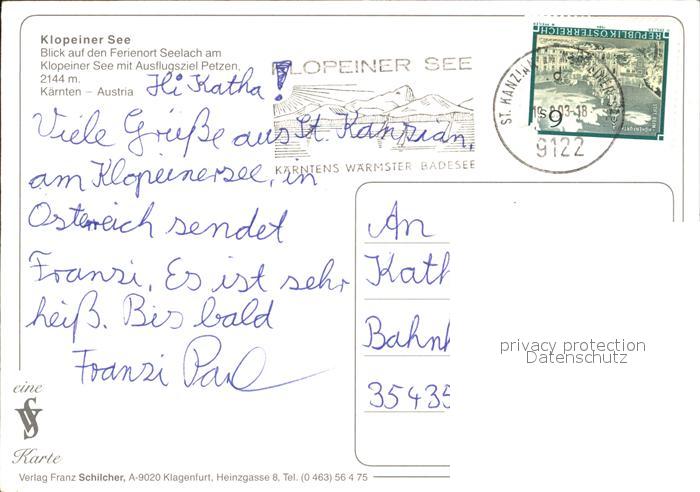 Klopeiner See
Blick auf den Ferienort Seelach am
Klopeiner See mit Ausflugsziel Petzen,
2144 m.
Kärnten – Austria
Hi Katha!
Viele Grüße aus St. Kanzian,
am Klopeinersee, in
Österreich sendet
Franzi. Es ist sehr
heiß. Bis bald
Franzi
KLOPEINER SEE
KÄRNTENS WÄRMSTER BADESEE
ST. KANZIAN
9122
REPUBLIK ÖSTERREICH
6 S
An
Kath
Bahnh
35435
privacy protection
Datenschutz
eine
Karte
Verlag Franz Schilcher, A-9020 Klagenfurt, Heinzgasse 8, Tel. (0 463) 56 4 75